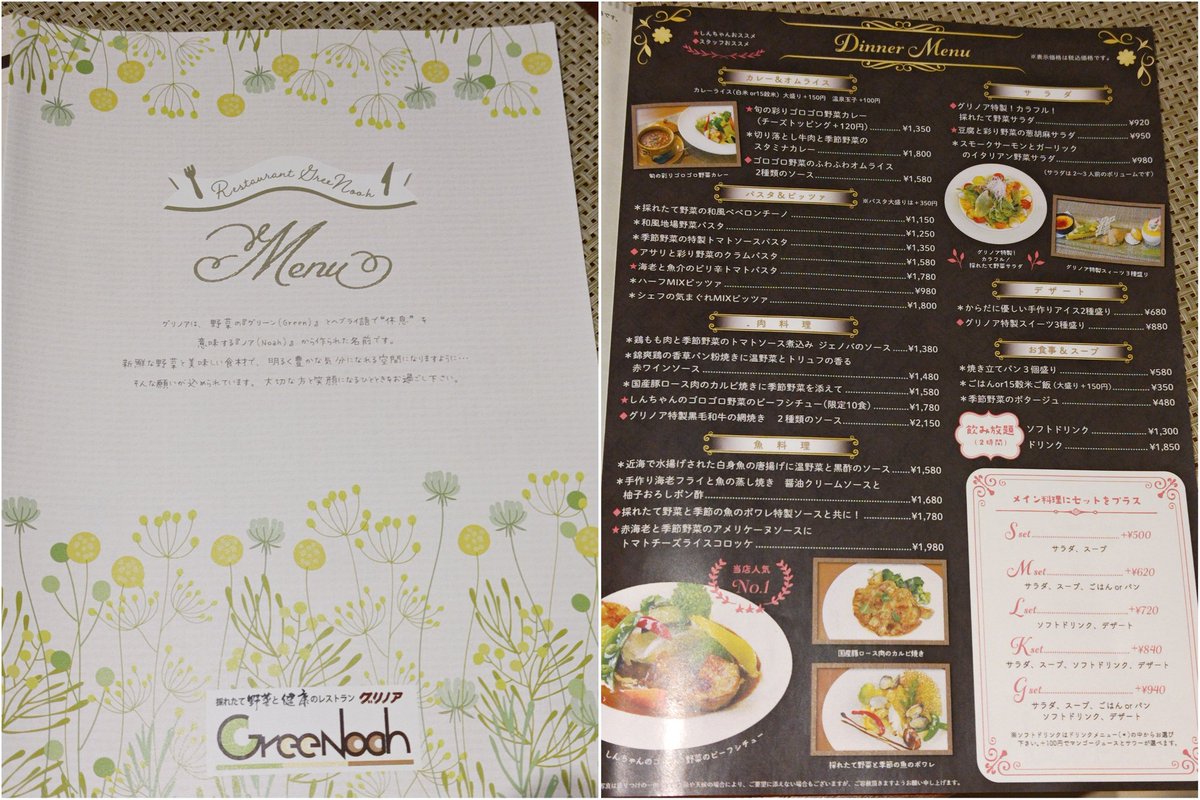 Restaurant GreeNoah
Menu
グリノアは、野菜の『グリーン(Green)』とヘブライ語で"休息"を
意味する『ノア(Noah)』から作られた名前です。
新鮮な野菜と美味しい食材で、明るく豊かな気分になれる空間になりますように…
そんな願いが込められています。大切な方と笑顔になるひとときをお過ごし下さい。
採れたて野菜と健康のレストラン グリノア
GreeNoah
★しんちゃんおススメ
◆スタッフおススメ
Dinner Menu
※表示価格は税込価格です。
カレー&オムライス
カレーライス(白米or15穀米) 大盛り+150円 温泉玉子+100円
★旬の彩りゴロゴロ野菜カレー
(チーズトッピング+120円)……¥1,350
＊切り落とし牛肉と季節野菜の
スタミナカレー……¥1,800
◆ゴロゴロ野菜のふわふわオムライス
2種類のソース……¥1,580
旬の彩りゴロゴロ野菜カレー
パスタ&ピッツァ
※パスタ大盛りは+350円
＊採れたて野菜の和風ペペロンチーノ……¥1,150
＊和風地場野菜パスタ……¥1,250
＊季節野菜の特製トマトソースパスタ……¥1,350
◆アサリと彩り野菜のクラムパスタ……¥1,580
★海老と魚介のピリ辛トマトパスタ……¥1,780
＊ハーフMIXピッツァ……¥980
＊シェフの気まぐれMIXピッツァ……¥1,800
肉料理
＊鶏もも肉と季節野菜のトマトソース煮込み ジェノバのソース……¥1,380
＊錦爽鶏の香草パン粉焼きに温野菜とトリュフの香る
赤ワインソース……¥1,480
＊国産豚ロース肉のカルビ焼きに季節野菜を添えて……¥1,580
★しんちゃんのゴロゴロ野菜のビーフシチュー(限定10食)……¥1,780
◆グリノア特製黒毛和牛の網焼き 2種類のソース……¥2,150
魚料理
＊近海で水揚げされた白身魚の唐揚げに温野菜と黒酢のソース……¥1,580
＊手作り海老フライと魚の蒸し焼き 醤油クリームソースと
柚子おろしポン酢……¥1,680
◆採れたて野菜と季節の魚のポワレ特製ソースと共に!……¥1,780
★赤海老と季節野菜のアメリケーヌソースに
トマトチーズライスコロッケ……¥1,980
当店人気
No.1
しんちゃんのゴロゴロ野菜のビーフシチュー
国産豚ロース肉のカルビ焼き
採れたて野菜と季節の魚のポワレ
サラダ
◆グリノア特製!カラフル!
採れたて野菜サラダ……¥920
★豆腐と彩り野菜の葱胡麻サラダ……¥950
＊スモークサーモンとガーリック
のイタリアン野菜サラダ……¥980
(サラダは2〜3人前のボリュームです)
グリノア特製!
カラフル!
採れたて野菜サラダ
グリノア特製スイーツ3種盛り
デザート
＊からだに優しい手作りアイス2種盛り……¥680
◆グリノア特製スイーツ3種盛り……¥880
お食事&スープ
＊焼き立てパン3個盛り……¥580
＊ごはんor15穀米ご飯(大盛り+150円)……¥350
＊季節野菜のポタージュ……¥480
飲み放題
(2時間)
ソフトドリンク……¥1,300
ドリンク……¥1,850
メイン料理にセットをプラス
S set……+¥500
サラダ、スープ
M set……+¥620
サラダ、スープ、ごはん or パン
L set……+¥720
ソフトドリンク、デザート
K set……+¥840
サラダ、スープ、ソフトドリンク、デザート
G set……+¥940
サラダ、スープ、ごはん or パン
ソフトドリンク、デザート
※ソフトドリンクはドリンクメニュー(＊)の中からお選び
下さい。+100円でマンゴージュースとサワーが選べます。
や天候の場合により、ご要望に添えない場合もございますが、ご容赦頂きますようお願い申し上げます。